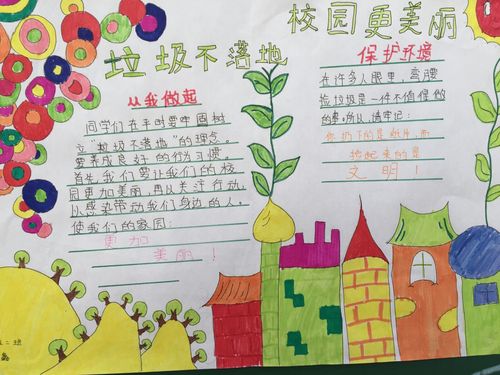 校园更美丽
垃圾不落地
从我做起
同学们在平时要牢固树
立"垃圾不落地"的理念。
要养成良好的行为习惯。
首先我们要让我们的校
园更加美丽,再从关注行动,
以感染带动我们身边的人。
使我们的家园:
更加
美丽!
保护环境
在许多人眼里,弯腰
捡垃圾是一件不值得做
的事,所以,请牢记:
你扔下的是纸片,而
捡起来的是
文明!
二班